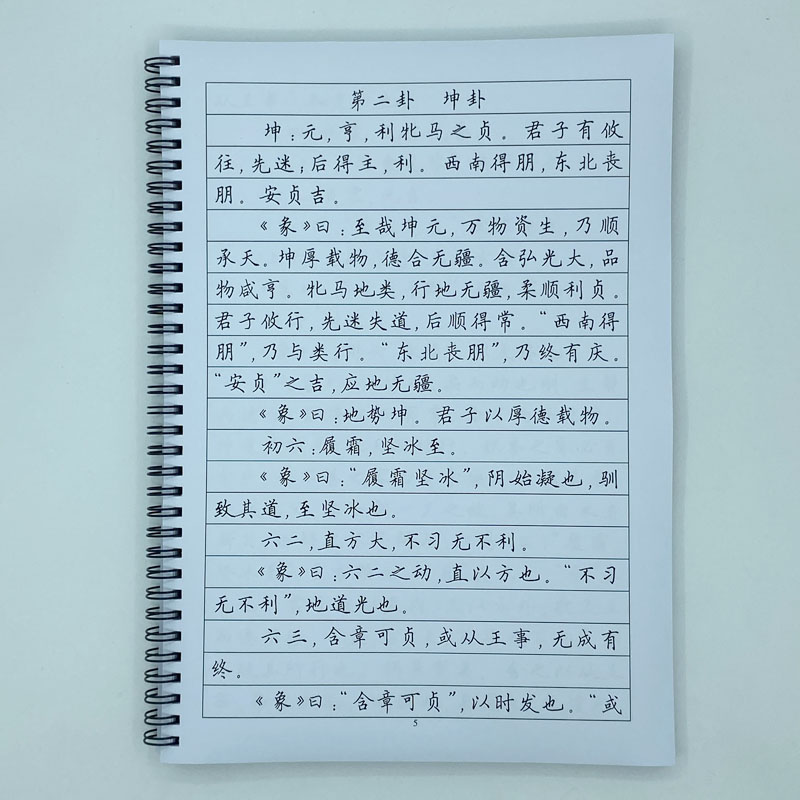 第二卦 坤卦
坤：元，亨，利牝马之贞。君子有攸
往，先迷；后得主，利。西南得朋，东北丧
朋。安贞吉。
《彖》曰：至哉坤元，万物资生，乃顺
承天。坤厚载物，德合无疆。含弘光大，品
物咸亨。牝马地类，行地无疆，柔顺利贞。
君子攸行，先迷失道，后顺得常。“西南得
朋”，乃与类行。“东北丧朋”，乃终有庆。
“安贞”之吉，应地无疆。
《象》曰：地势坤。君子以厚德载物。
初六：履霜，坚冰至。
《象》曰：“履霜坚冰”，阴始凝也，驯
致其道，至坚冰也。
六二，直方大，不习无不利。
《象》曰：六二之动，直以方也。“不习
无不利”，地道光也。
六三，含章可贞，或从王事，无成有
终。
《象》曰：“含章可贞”，以时发也。“或
5